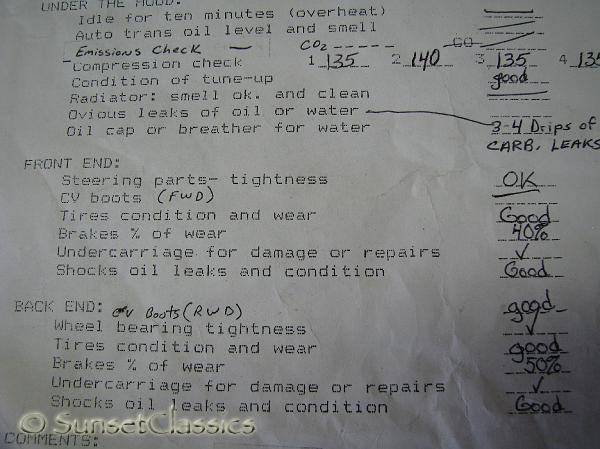 UNDER THE HOOD:
Idle for ten minutes (overheat)
Auto trans oil level and smell
Emissions Check — CO2 ------ CO
Compression check 1 135 2 140 3 135 4 135
Condition of tune-up good
Radiator: smell ok. and clean
Ovious leaks of oil or water 3-4 Drips of
Oil cap or breather for water CARB. LEAKS
FRONT END:
Steering parts- tightness OK
CV boots (FWD)
Tires condition and wear Good
Brakes % of wear 40%
Undercarriage for damage or repairs ✓
Shocks oil leaks and condition Good
BACK END: CV Boots (RWD) good
Wheel bearing tightness ✓
Tires condition and wear good
Brakes % of wear 50%
Undercarriage for damage or repairs ✓
Shocks oil leaks and condition Good
© SunsetClassics
COMMENTS: